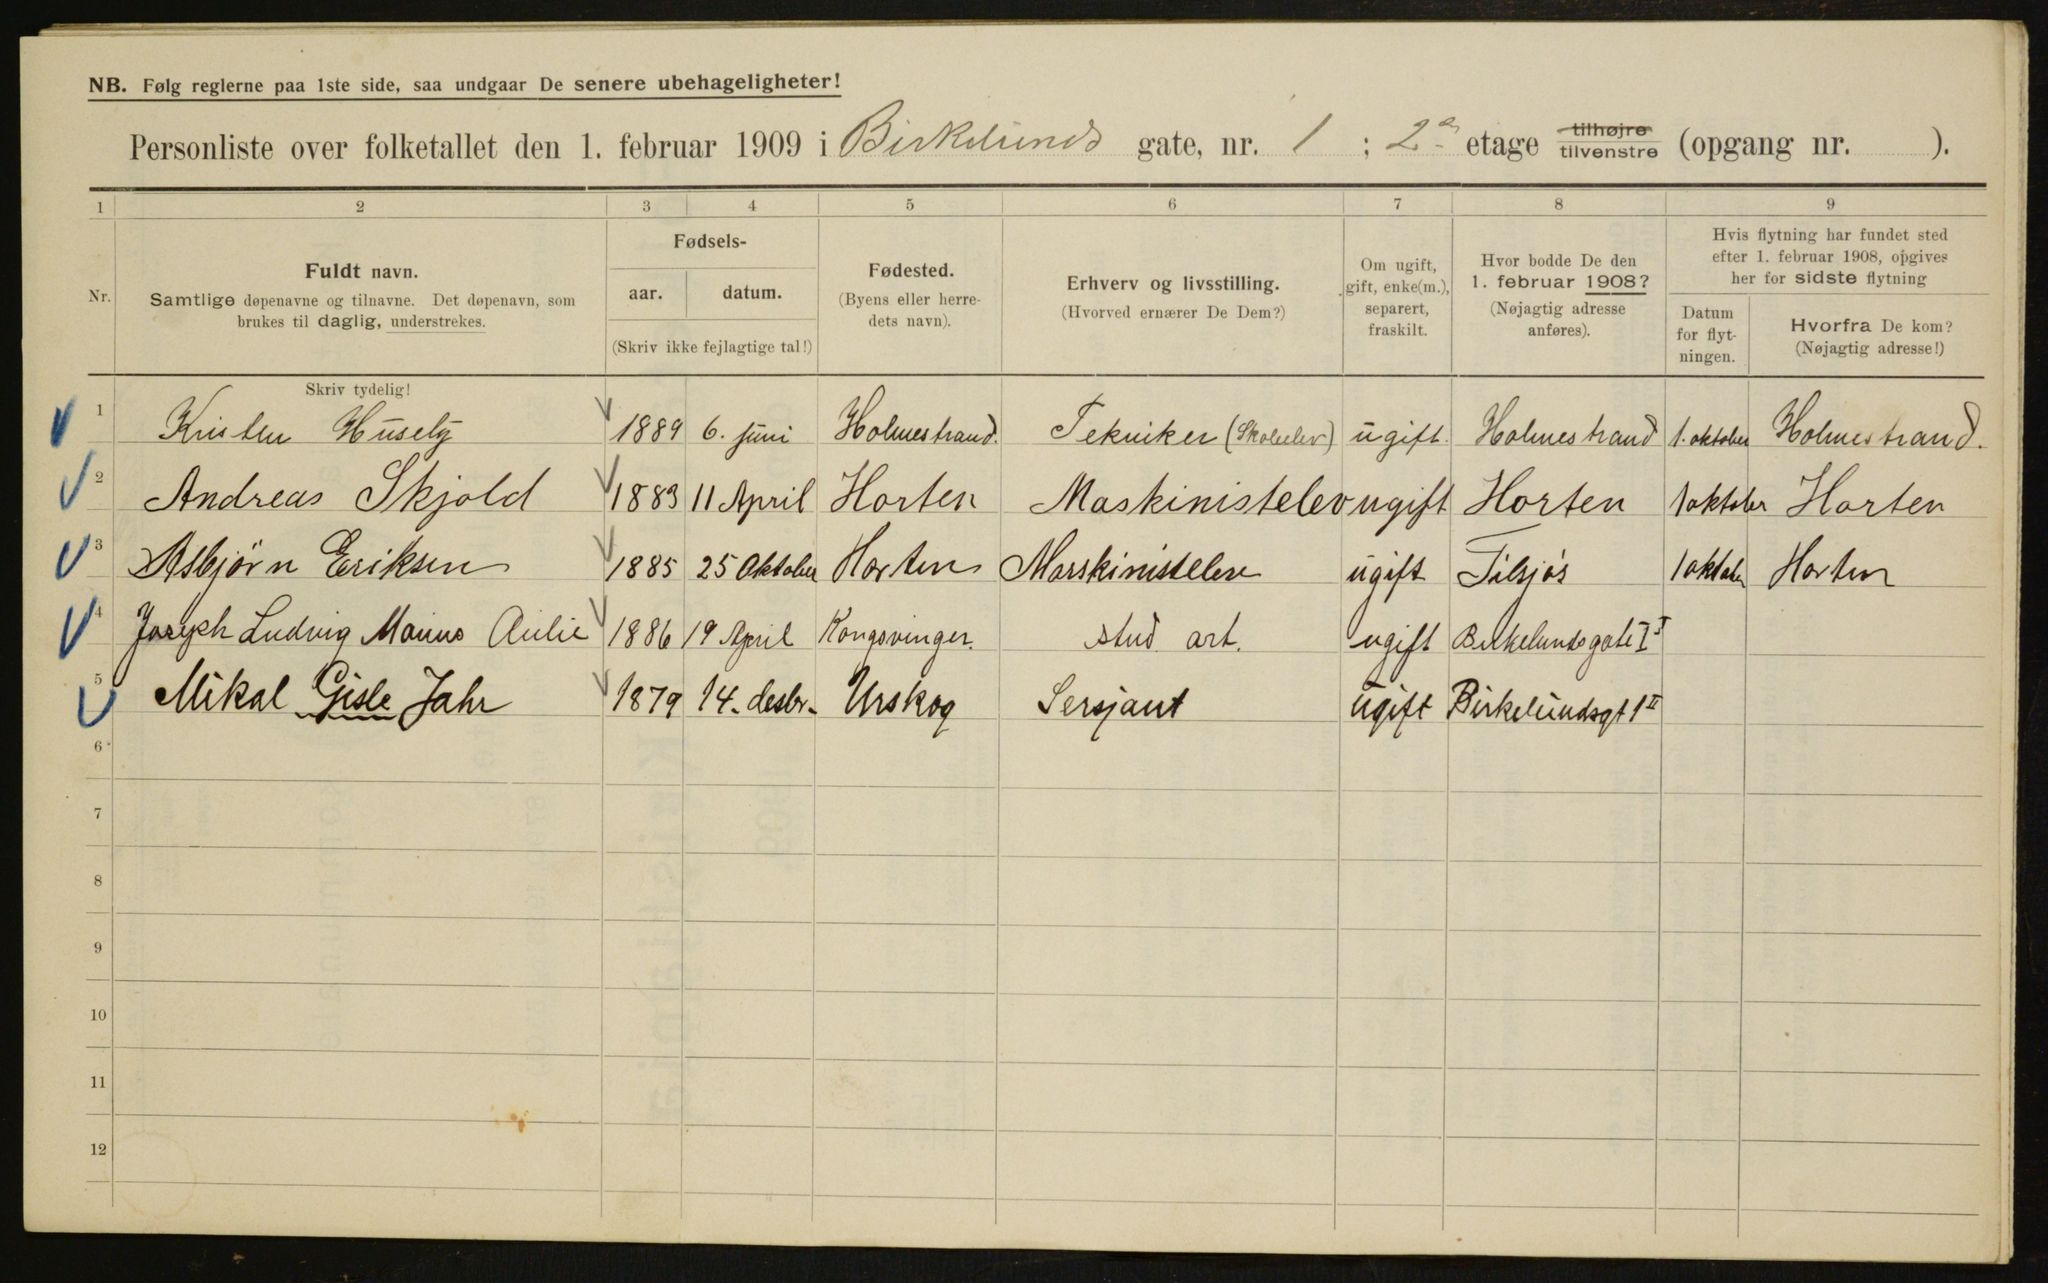 NB. Følg reglerne paa 1ste side, saa undgaar De senere ubehageligheter!
Personliste over folketallet den 1. februar 1909 i Birkelunds gate, nr. 1 ; 2den etage tilhøjre tilvenstre (opgang nr. ).
1 2 3 4 5 6 7 8 9
Nr.
Fuldt navn.
Samtlige døpenavne og tilnavne. Det døpenavn, som
brukes til daglig, understrekes.
Fødsels-
aar. datum.
(Skriv ikke fejlagtige tal!)
Fødested.
(Byens eller herre-
dets navn).
Erhverv og livsstilling.
(Hvorved ernærer De Dem?)
Om ugift,
gift, enke(m.),
separert,
fraskilt.
Hvor bodde De den
1. februar 1908?
(Nøjagtig adresse
anføres).
Hvis flytning har fundet sted
efter 1. februar 1908, opgives
her for sidste flytning
Datum
for flyt-
ningen.
Hvorfra De kom?
(Nøjagtig adresse!)
Skriv tydelig!
1 Kristen Huseby 1889 6. juni Holmestrand. Tekniker (Skoleelev) ugift. Holmestrand 1. oktober Holmestrand.
2 Andreas Skjold 1883 11 April Horten Maskinistelev ugift Horten 1 oktober Horten
3 Asbjørn Eriksen 1885 25 Oktober Horten Maskinistelev ugift Tilsjøs 1 oktober Horten
4 Joseph Ludvig Manus Aulie 1886 19 April Kongsvinger. stud art. ugift Birkelundsgate 1
5 Mikal Gisle Jahr 1879 14. desbr. Urskog Sersjant ugift Birkelundsgt 1 II
6
7
8
9
10
11
12